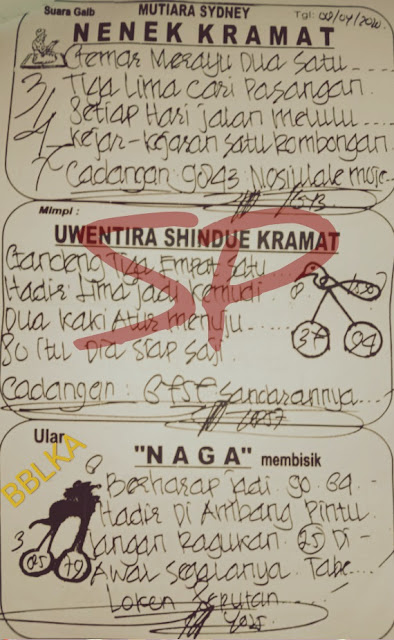 Suara Gaib
MUTIARA SYDNEY
Tgl: 08/04/2020
NENEK KRAMAT
Gemar Merayu Dua Satu....
Tiga Lima Cari Pasangan.
Setiap Hari jalan melulu...
Kejar-kejaran satu Rombongan.
Cadangan: 9043
3/4
7
Mimpi :
UWENTIRA SHINDUE KRAMAT
Gandeng Tiga Empat Satu...
Hadir Lima jadi Kemudi.
Dua Kaki Atur menuju.....
80 Itu Dia Siap Saji.
37
04
Cadangan : sandarannya...
SP
Ular
BBLKA
"NAGA" membisik
Berharap jadi 90.
Hadir Di Ambang Pintu.
jangan Ragukan. 25 Di-
Awal segalanya. Tabe...
3
25
79